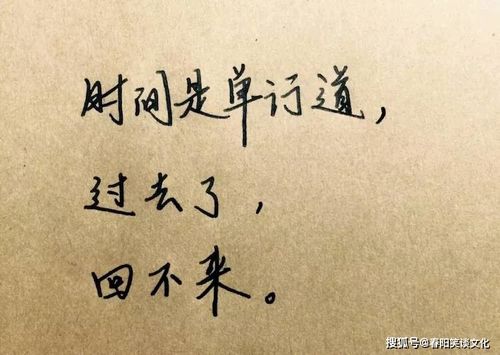 时间是单行道，
过去了，
回不来。
搜狐号@春阳笑谈文化